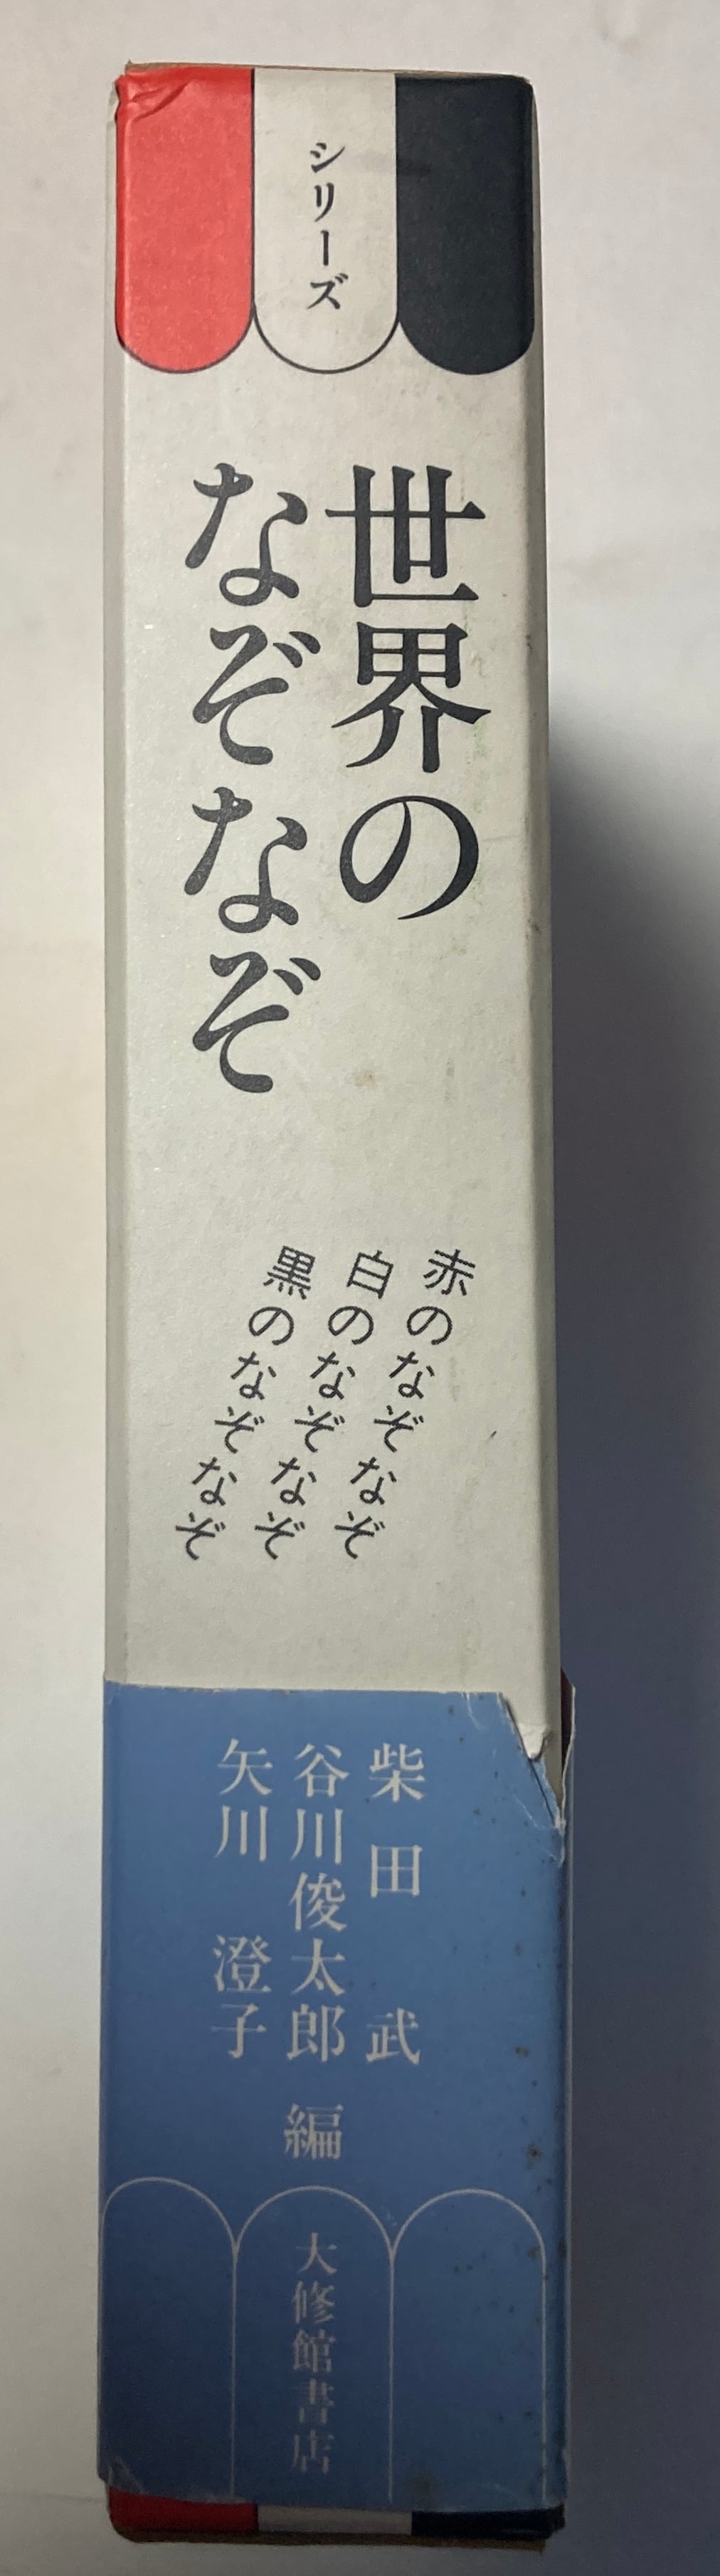 シリーズ
世界の
なぞなぞ
赤のなぞなぞ
白のなぞなぞ
黒のなぞなぞ
柴田 武
谷川俊太郎 編
矢川 澄子
大修館書店